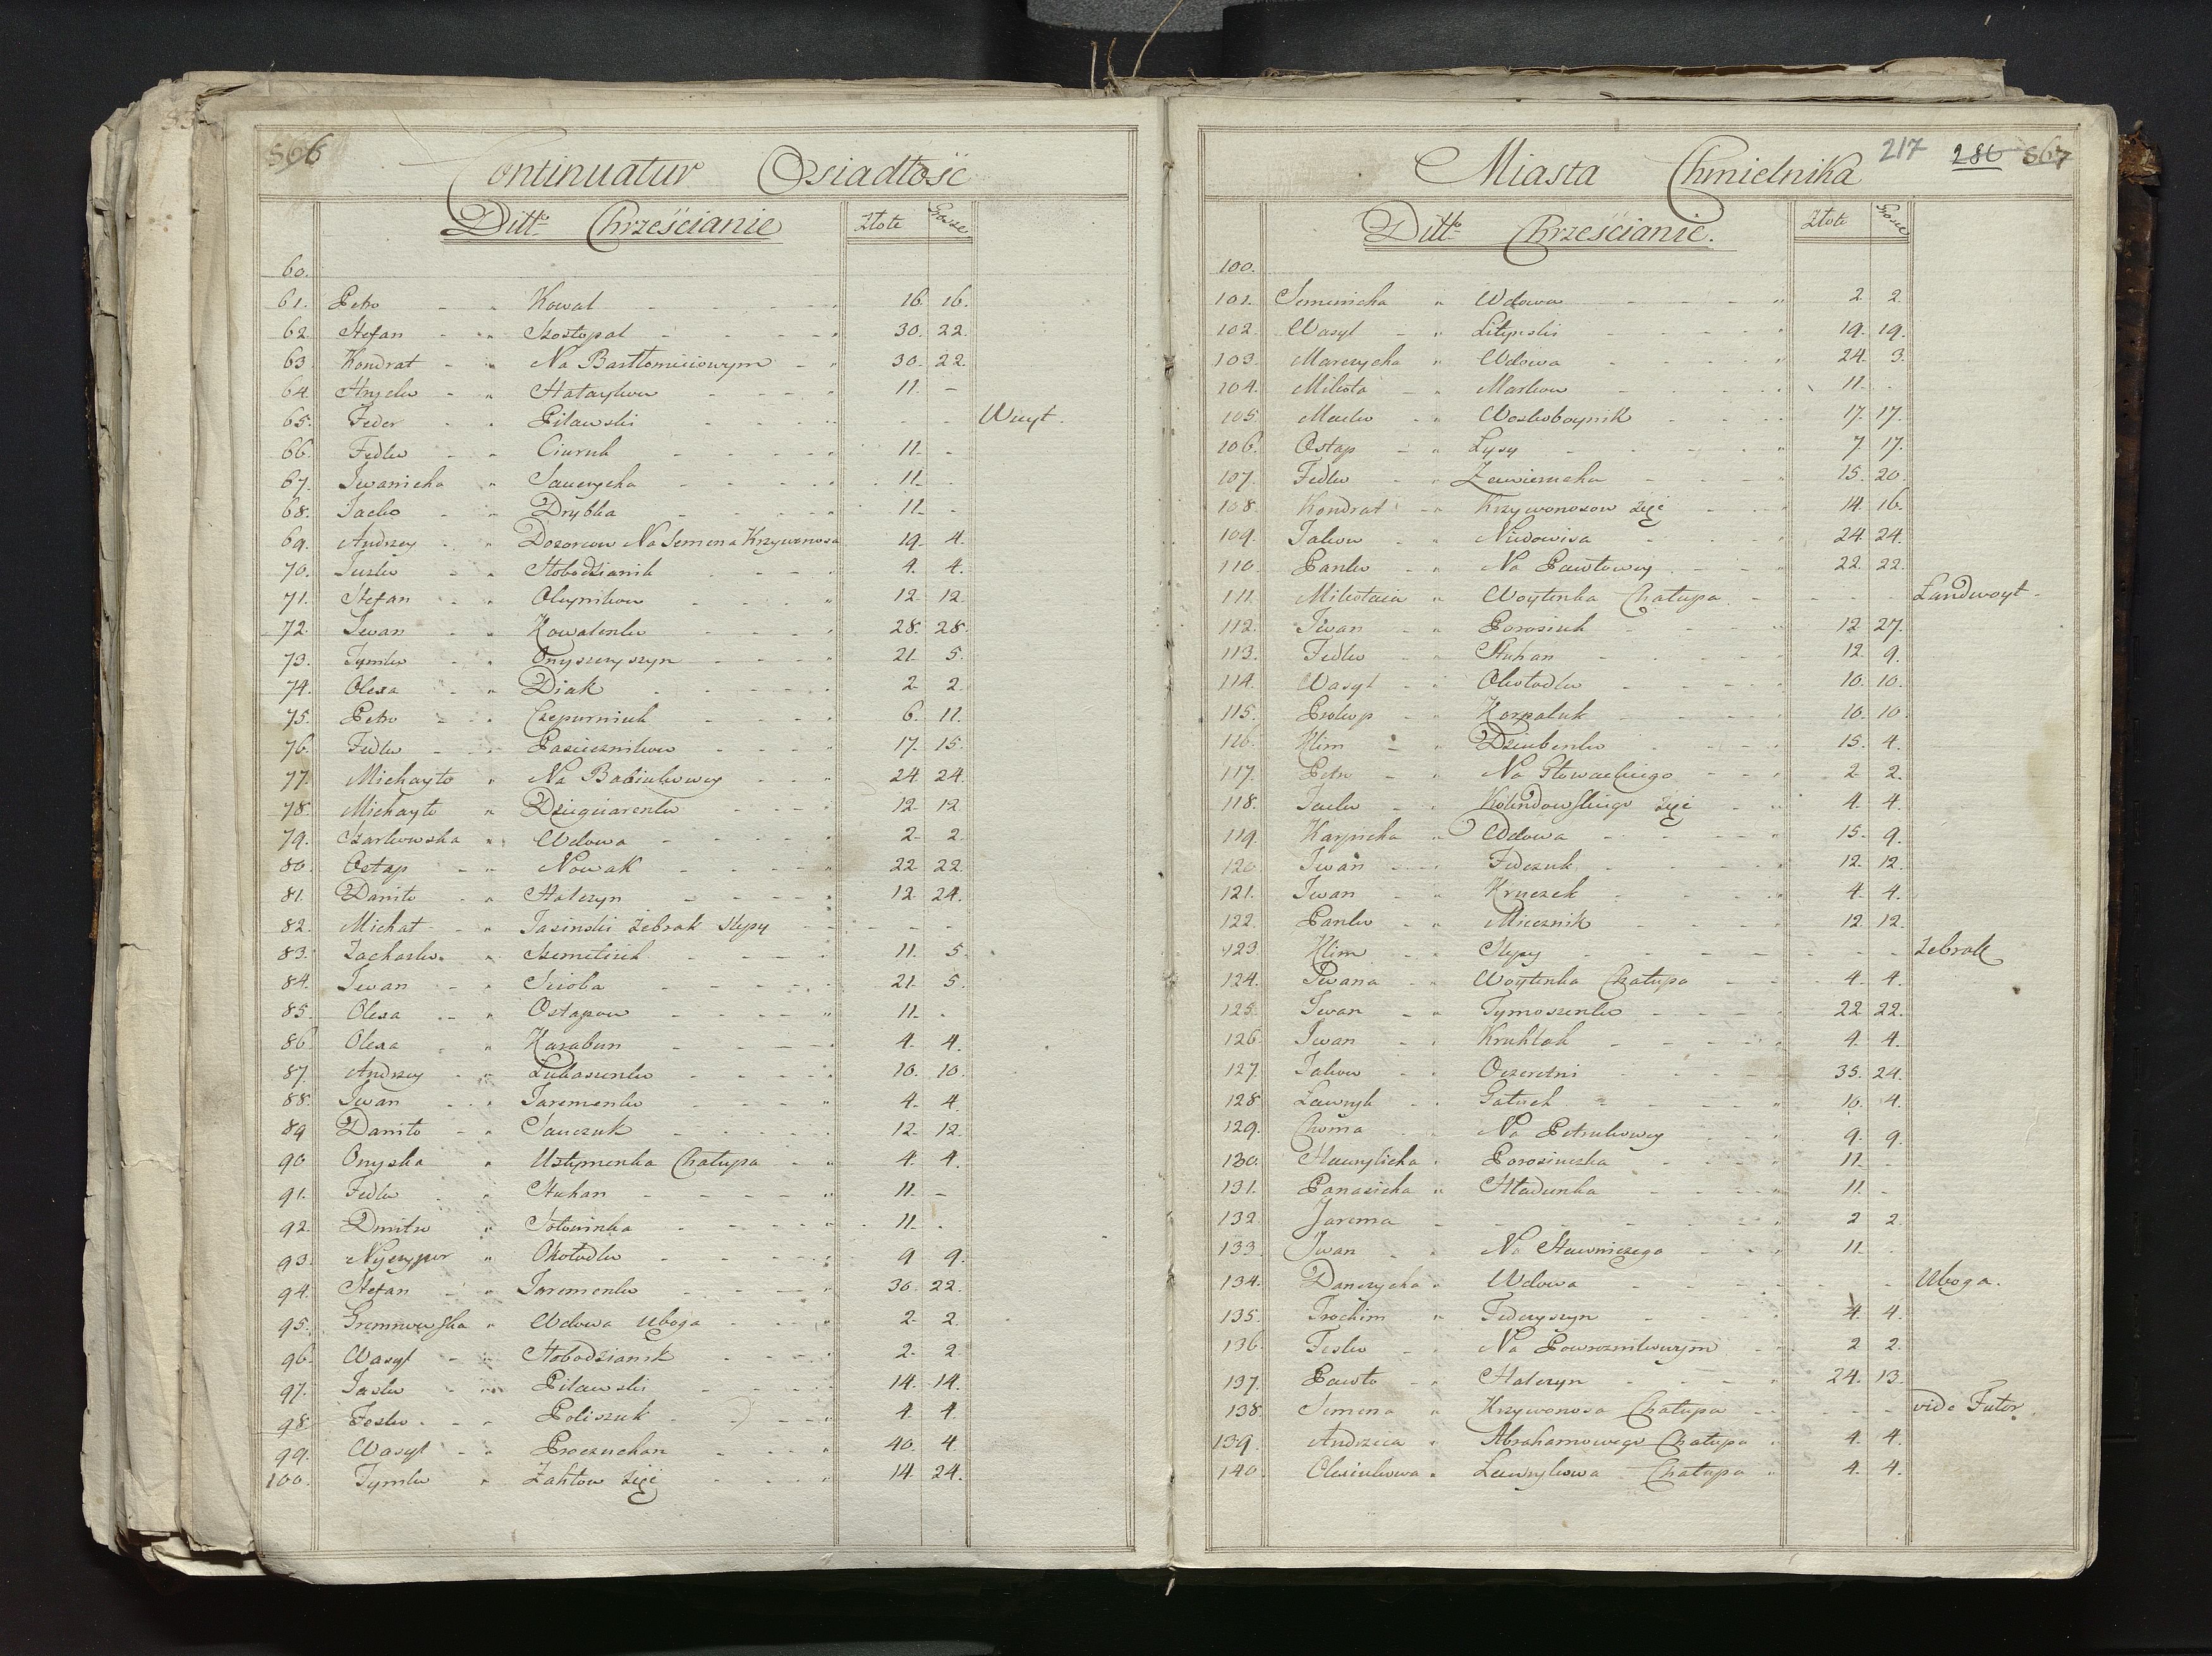 566
Continuatur Osiadłość
Ditto Chrześcianie Złote Grosze
60.
61. Petro Kowal 16. 16.
62. Stefan Szostopal 30. 22.
63. Kondrat Na Bartłomieiowym 30. 22.
64. Hryćko 11. -
65. Feder Pilawski - - Woyt.
66. Fedko Ciuruk 11. -
67. Iwanicha Sauczycha 11. -
68. Jacko Drybka 11. -
69. Andrzey Dozorcow Na Semena Krzywonosa 19. 4.
70. Juśko Słobodzianik 4. 4.
71. Stefan Oleynikow 12. 12.
72. Iwan Kowalenko 28. 28.
73. Tymko Onyszczyszyn 21. 5.
74. Olexa Diak 2. 2.
75. Petro Czepurniuk 6. 11.
76. Fedko Pasiecznikow 17. 15.
77. Michayło Na Babiukowey 24. 24.
78. Michayło Dziegciarenko 12. 12.
79. Szarkowska Wdowa 2. 2.
80. Ostap Nowak 22. 22.
81. Daniło Halczyn 12. 24.
82. Michał Jasinski żebrak ślepy - -
83. Zacharko Szemetiuk 11. 5.
84. Iwan Scioba 21. 5.
85. Olexa Ostapow 11. -
86. Olexa Karabun 4. 4.
87. Andrzey Łukaszenko 10. 10.
88. Iwan Jaremenko 4. 4.
89. Daniło Sauczuk 12. 12.
90. Onyska Ustymenka Chałupa 4. 4.
91. Fedko Stuhan 11. -
92. Dmitro Sołowinka 11. -
93. Nyczypor Okołodko 9. 9.
94. Stefan Jaremenko 30. 22.
95. Gremnowska Wdowa Uboga 2. 2.
96. Wasyl Słobodzianik 2. 2.
97. Jaśko Pilawski 14. 14.
98. Fesko Poliszuk 4. 4.
99. Wasyl Proczuchan 40. 4.
100. Tymko Zahłow zięć 14. 24.
217 286 567
Miasta Chmielnika
Ditto Chrześcianie. Złote Grosze
100.
101. Semenicha Wdowa 2. 2.
102. Wasyl Litynski 19. 19.
103. Marczycha Wdowa 24. 3.
104. Mikoła Markow 11. -
105. Macko Woskoboynik 17. 17.
106. Ostap Łysy 7. 17.
107. Fedko Zawierucha 15. 20.
108. Kondrat Krzywonosow zięć 14. 16.
109. Jakow Niedowisa 24. 24.
110. Pawko Na Pawłowey 22. 22.
111. Mikołaia Woytenka Chałupa - - Landwoyt
112. Iwan Porosiuk 12. 27.
113. Fedko Stuhan 12. 9.
114. Wasyl Okołodko 10. 10.
115. Prokop Korpaluk 10. 10.
116. Klim Dziubenko 15. 4.
117. Petro Na Głowackiego 2. 2.
118. Jacko Kołendowskiego zięć 4. 4.
119. Karpicha Wdowa 15. 9.
120. Iwan Fedczuk 12. 12.
121. Iwan Kruczek 4. 4.
122. Pawko Miecznik 12. 12.
123. Klim Slepy - - żebrak
124. Iwana Woytenka Chałupa 4. 4.
125. Iwan Tymoszenko 22. 22.
126. Iwan Kruhlak 4. 4.
127. Jakow Oczeretni 35. 24.
128. Ławryk Gatuch 10. 4.
129. Choma Na Petrukowey 9. 9.
130. Hawrylicha Porosiuczka 11. -
131. Panasicha Hładunka 11. -
132. Jarema 2. 2.
133. Iwan Na Stawniczego 11. -
134. Danczycha Wdowa - - Uboga.
135. Trochim Federyszyn 4. 4.
136. Fesko Na Powroznikowym 2. 2.
137. Pawło Halczyn 24. 13.
138. Semena Krzywonosa Chałupa - - vide Futor.
139. Andrzeia Abrahamowego Chałupa 4. 4.
140. Olesiukowa Ławrykowa Chałupa 4. 4.